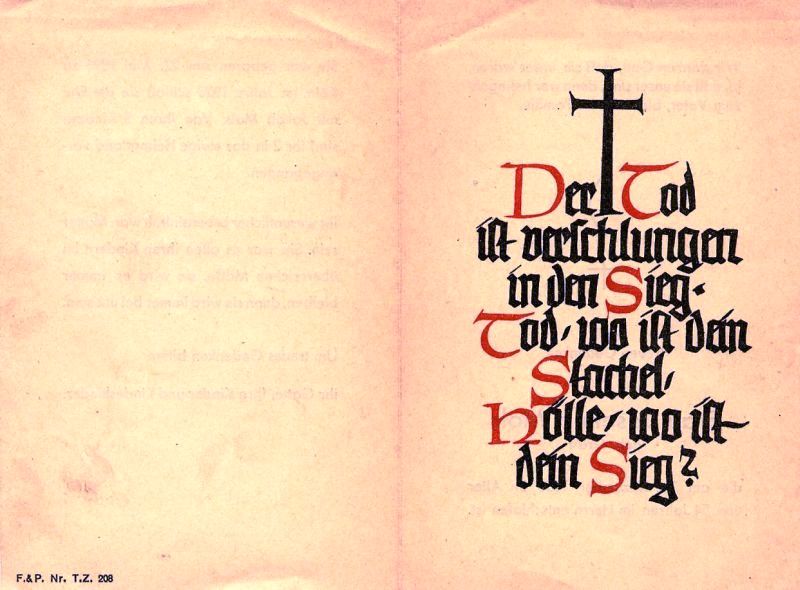 Der Tod
ist verschlungen
in den Sieg.
Tod, wo ist dein
Stachel,
Hölle, wo ist
dein Sieg?
F.&P. Nr. T.Z. 208